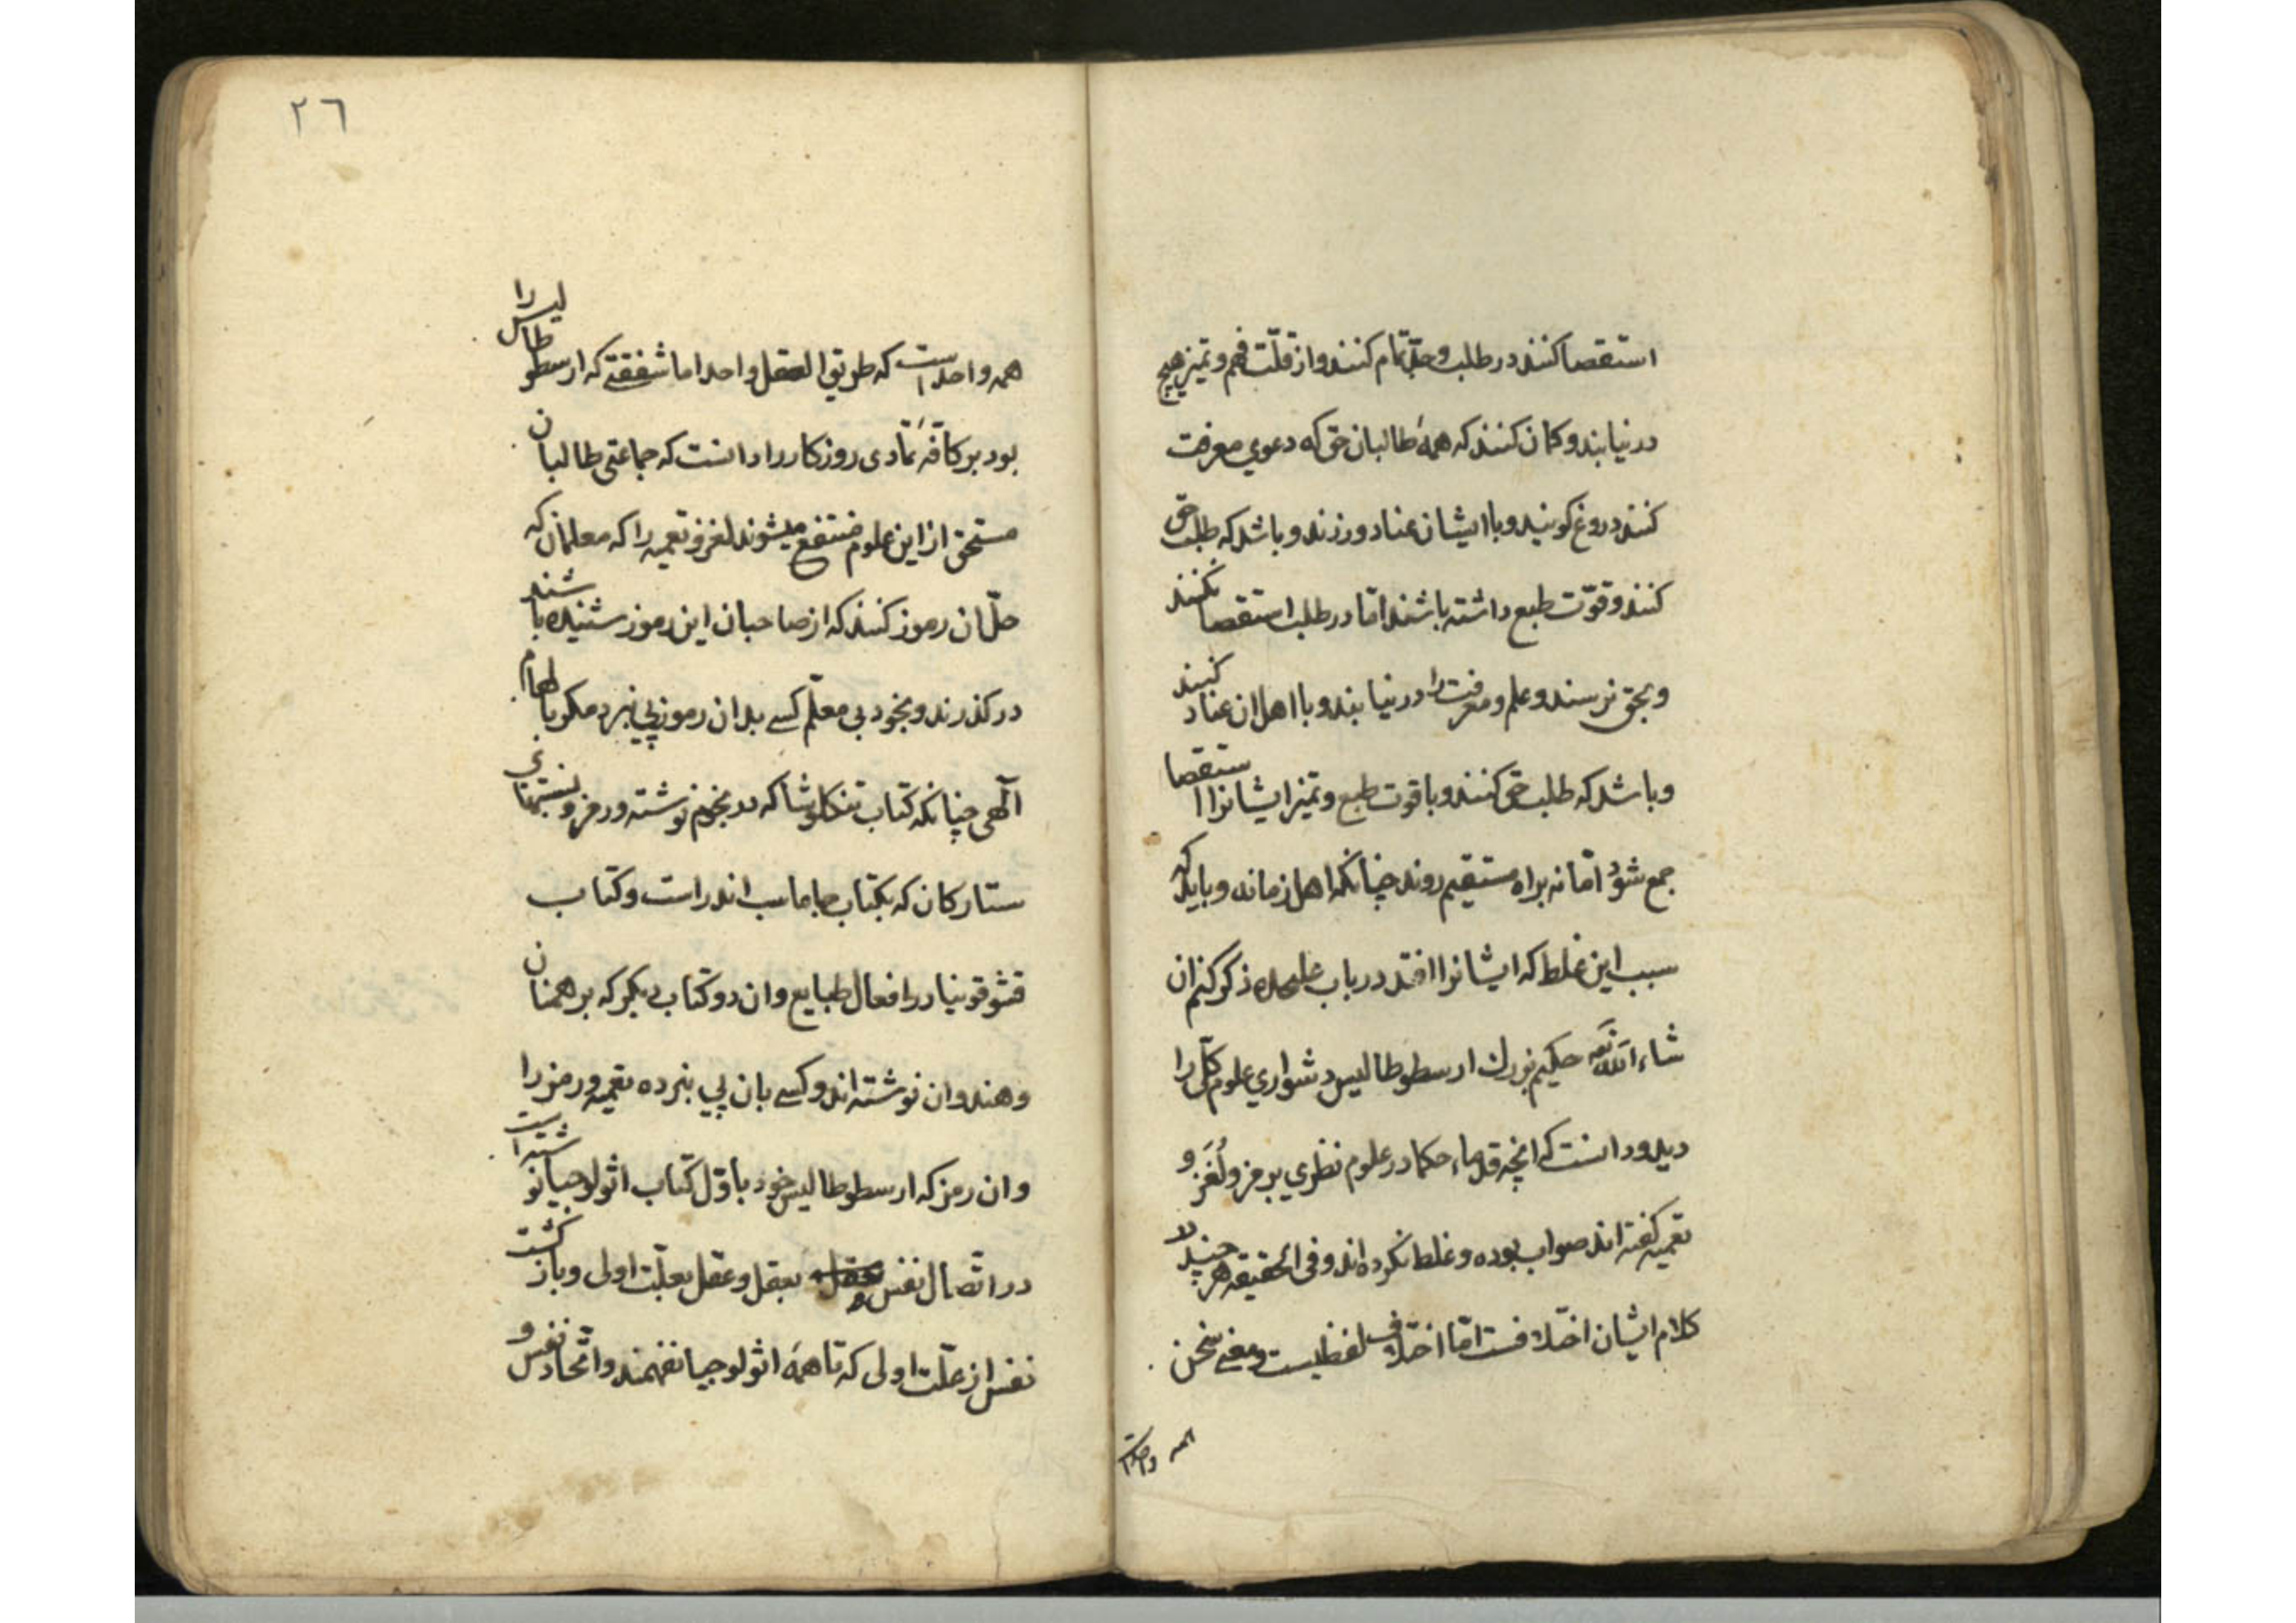 استقصا کنند در طلب و جد تمام کنند و از قلّت فهم و تمیز هیچ
در نیابند و کمان کنند که همهٔ طالبان حق که دعوي معرفت
کنند دروغ کویند و با ایشان عناد ورزند و باشد که طلب حق
کنند و قوّت طبع داشته باشند امّا در طلب استقصا نکنند
و بحق نرسند و علم و معرفت را در نیابند و با اهل ان عناد کنند
و باشد که طلب حق کنند و با قوت طبع و تمیز ایشانرا استقصا
جمع شود امّا نه براه مستقیم روند چنانکه اهل زمانه و باید که
سبب این غلط که ایشانرا افتد در باب علیحده ذکر کنم ان
شاء الله تعه حکیم بزرك ارسطوطالیس دشواري علوم کلّی را
دید و دانست که انچه قدماء حکما در علوم نظري برمز و لُغَز و
تعمیه کفته اند صواب بوده و غلط نکرده اند و فی الحقیقه هر چند در
کلام ایشان اختلافست امّا اختلاف لفظیست و معنے سخن
همه واحد است
٢٦
همه واحد است که طریق العقل واحد اما شفقتے که ارسطوطالیس را
بود بر کافّه تمادی روزکار را دانست که جماعتی طالبان
مستحق از این علوم منتفع میشوند لغز و تعمیه را که معلمان که
حلّ ان رموز کنند که از صاحبان این رموز شنیده باشند
در کذرند و بخود بی معلّم کسے بدان رموز پي نبرد مکر بالهام
آلهی چنانکه کتاب تنکلوشا که در نجوم نوشته و رمز و
ستارکان که بکتاب جاماسب اندر است و کتاب
در افعال طبایع و ان دو کتاب دیکر که برهمنان
و هندوان نوشته اند و کسے بان پي نبرده تعمیه و رمز را
و ان رمز که ارسطوطالیس خود باوّل کتاب اثولوجیا نوشته است
در اتّصال نفس بعقل و عقل بعلّت اولی و باز کشت
نفس از علّت اولی که تا همهٔ اثولوجیا نفهمند و اتّحاد نفس و